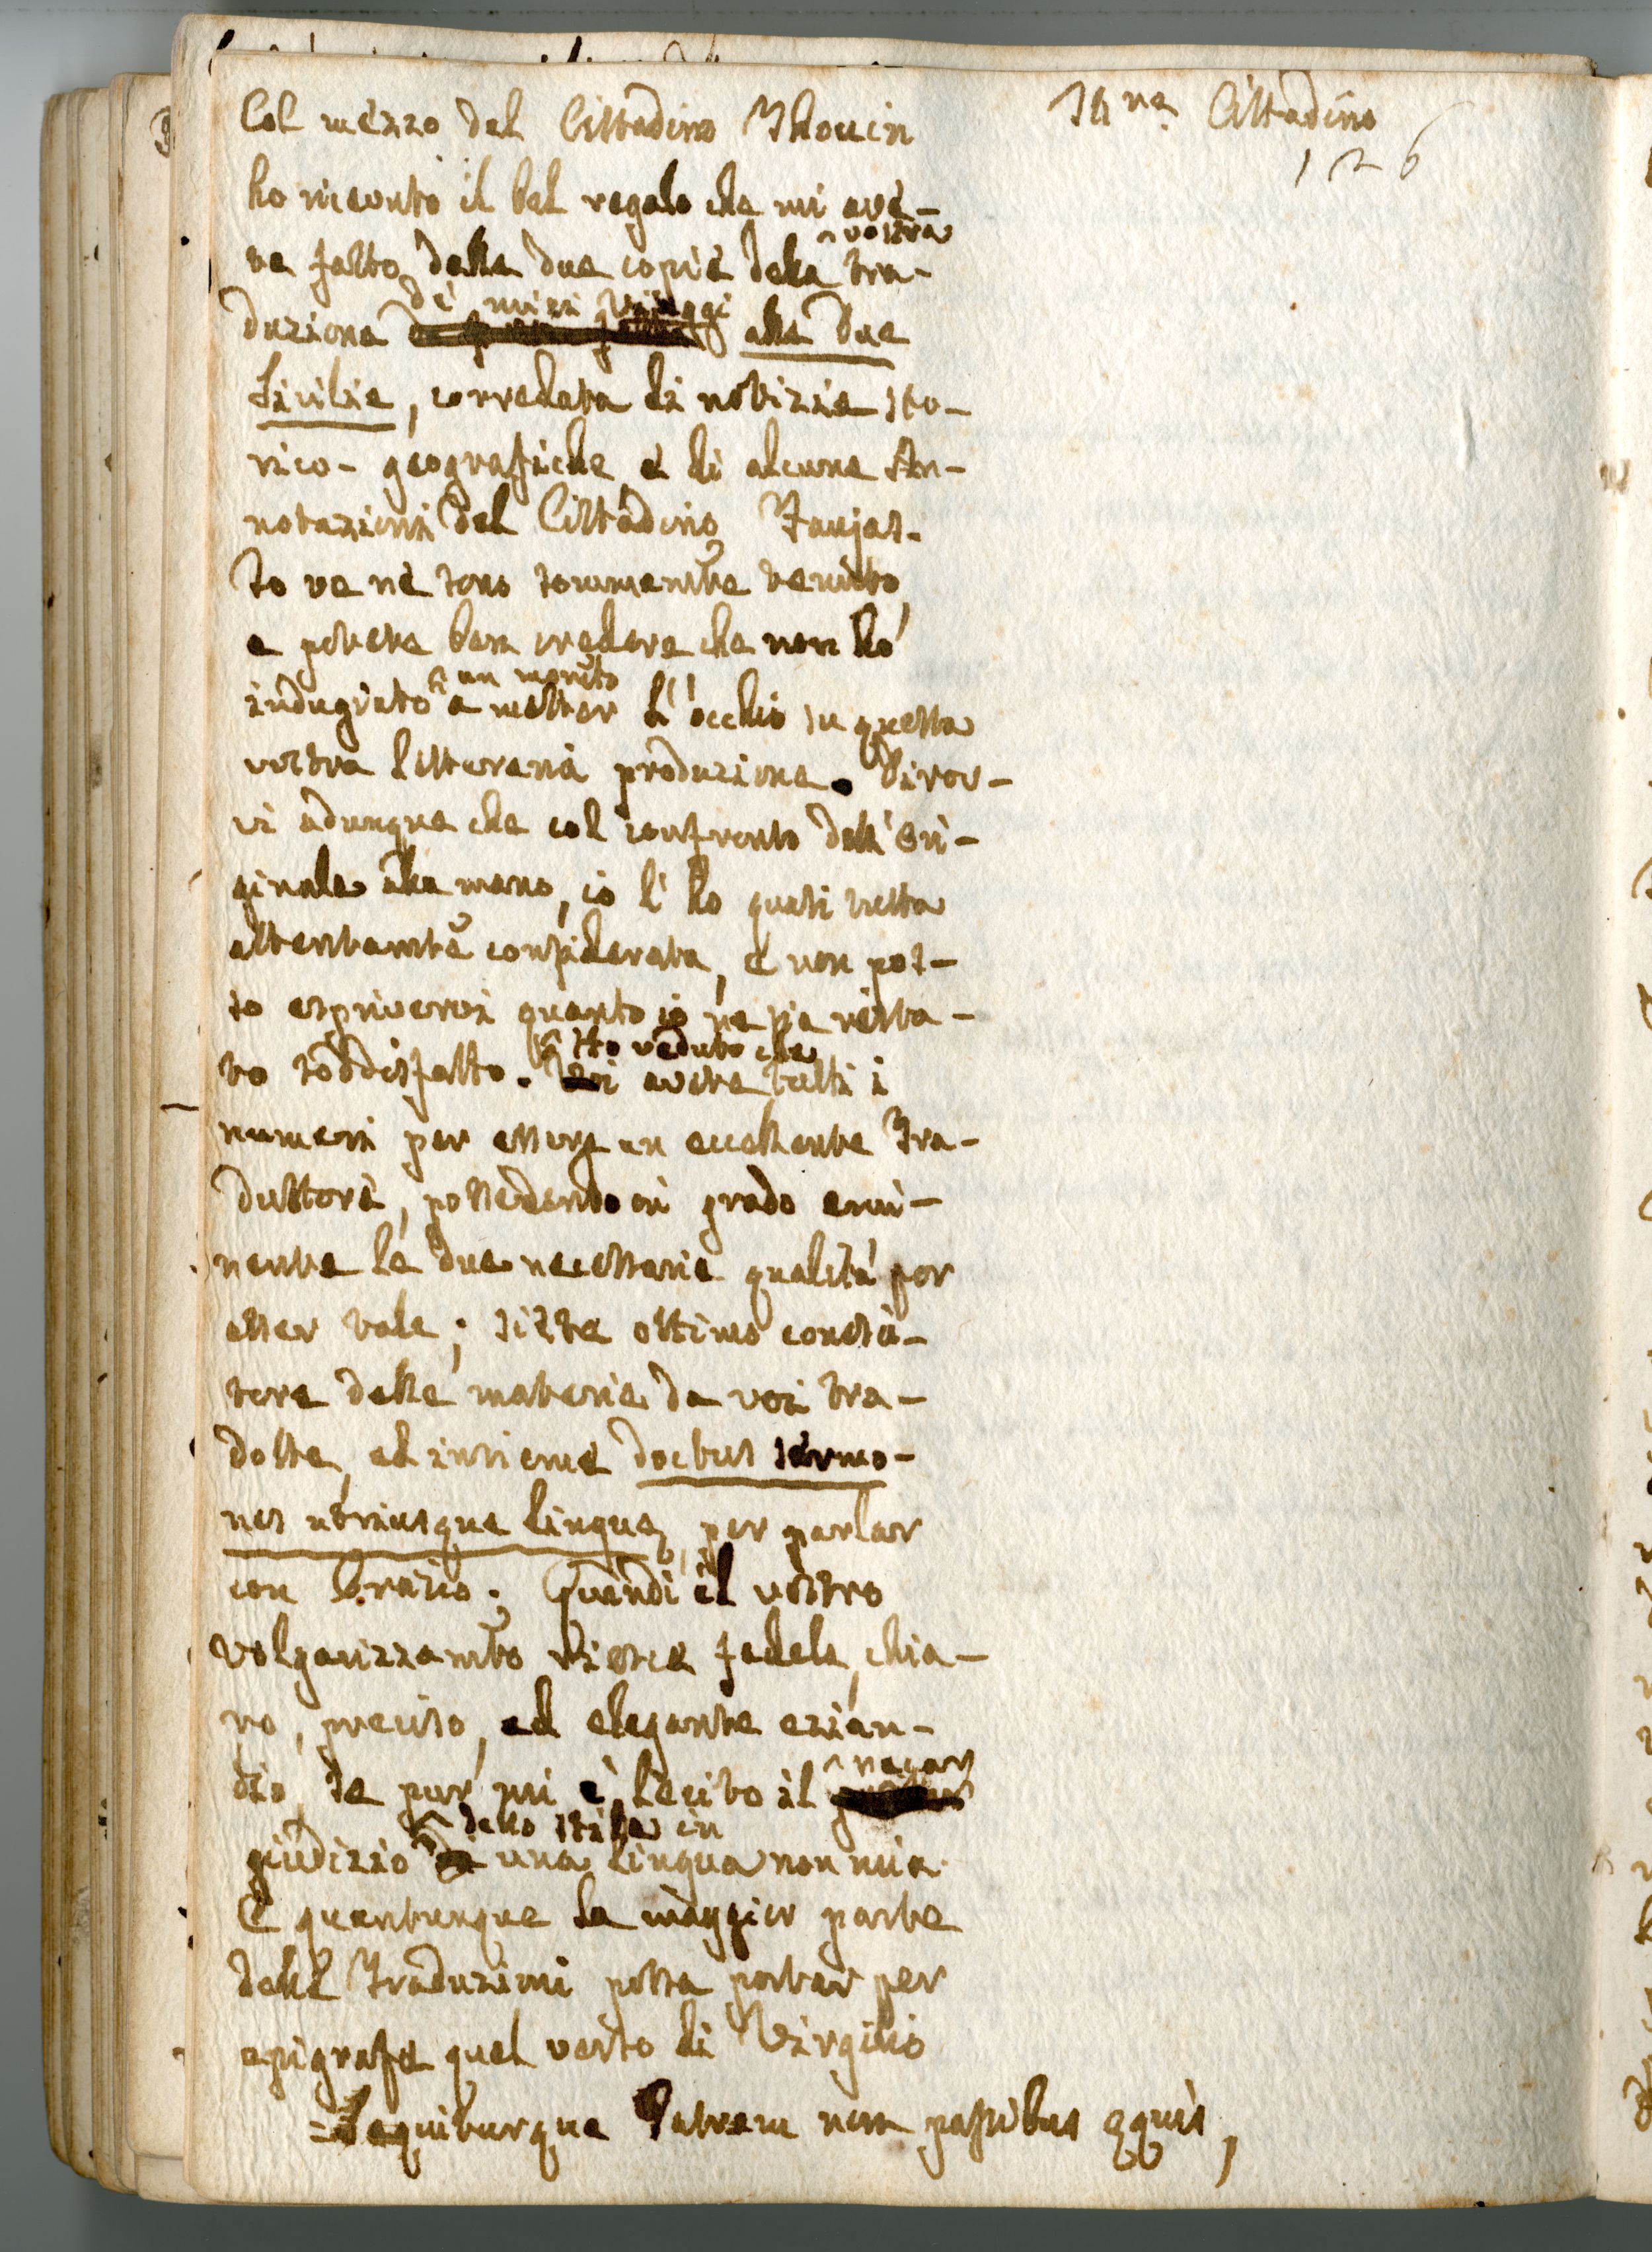 Stim.mo Cittadino
126
Col mezzo del Cittadino Thouin
ho ricevuto il bel regalo che mi ave-
te fatto delle due copie della ^vostra tra-
duzione de' miei Viaggi alle Due
Sicilie, corredata di notizie sto-
rico-geografiche e di alcune An-
notazioni del Cittadino Faujas.
Io ve ne sono sommamte tenuto,
e potete ben credere che non ho
indugiato ^un momto a metter l'occhio su questa
vostra letteraria produzione. Dirov-
vi adunque che col confronto dell'Ori-
ginale alla mano, io l'ho quasi tutta
attentamte considerata, e non pos-
so esprimervi quanto io ne sia resta-
to soddisfatto. ^Ho veduto che avete tutti i
numeri per essere un eccellente Tra-
duttore, possedendo in grado emi-
nente le due necessarie qualità per
esser tale; siete ottimo conosci-
tore delle materie da voi tra-
dotte, ed insieme doctus sermo-
nes utriusque linguæ, per parlar
con Orazio. Quindi il vostro
volgarizzamto riesce fedele, chia-
ro, preciso, ed elegante ezian-
dio, se pur mi è lecito il ^recar
giudizio ^dello stile in una lingua non mia.
E quantunque la maggior parte
delle Traduzioni possa portar per
epigrafe quel verso di Virgilio
=Sequiturque Patrem non passibus æquis,